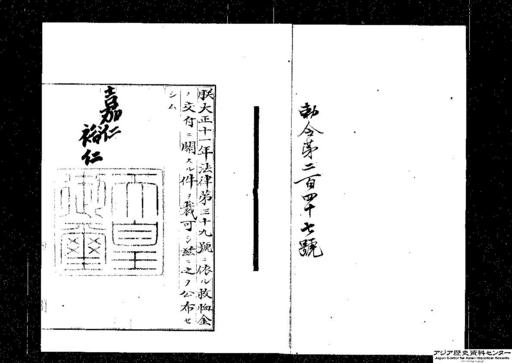 勅令第二百四十七號
朕大正十一年法律第三十九號ニ依ル救恤金
ノ交付ニ關スル件ヲ裁可シ茲ニ之ヲ公布セ
シム
嘉仁
裕仁
天皇
御璽
アジア歴史資料センター
Japan Center for Asian Historical Records